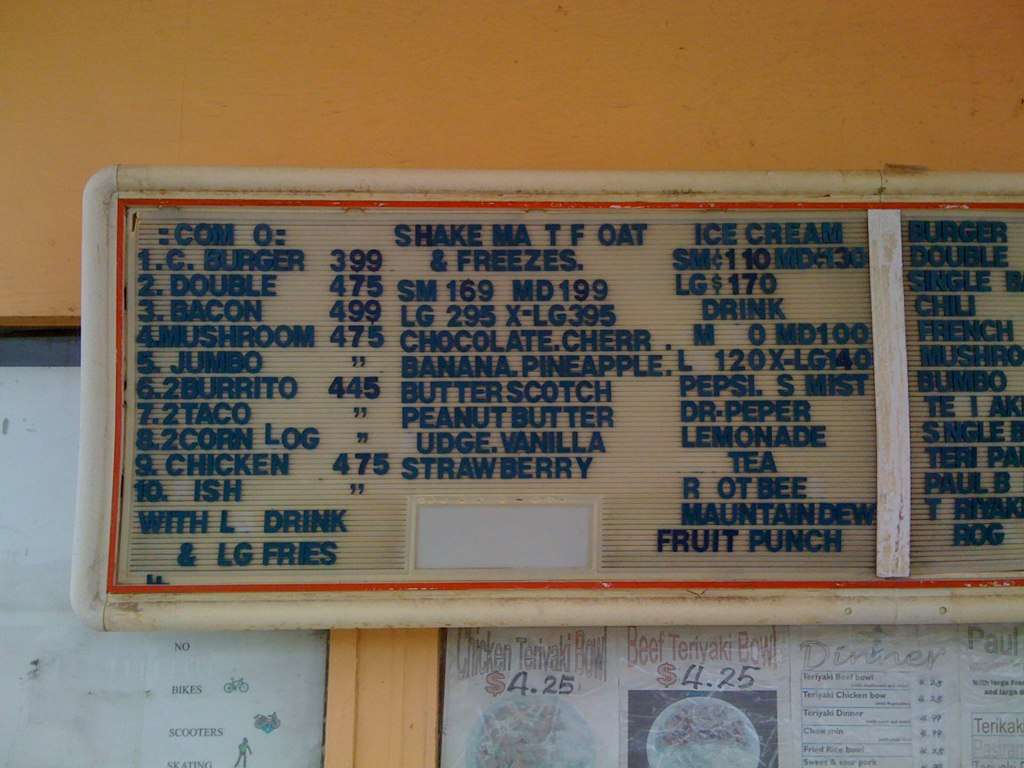 :COM O:
1. C. BURGER 399
2. DOUBLE 475
3. BACON 499
4. MUSHROOM 475
5. JUMBO "
6. 2BURRITO 445
7. 2TACO "
8. 2CORN LOG "
9. CHICKEN 475
10. ISH "
WITH L DRINK
& LG FRIES
SHAKE MA T F OAT
& FREEZES.
SM 169 MD 199
LG 295 X-LG395
CHOCOLATE. CHERR .
BANANA. PINEAPPLE.
BUTTERSCOTCH
PEANUT BUTTER
UDGE. VANILLA
STRAWBERRY
ICE CREAM
SM¢110 MD¢130
LG$170
DRINK
M 0 MD100
L 120X-LG140
PEPSI. S MIST
DR-PEPER
LEMONADE
TEA
R OT BEE
MAUNTAINDEW
FRUIT PUNCH
BURGER
DOUBLE
SINGLE BA
CHILI
FRENCH
MUSHRO
BUMBO
TE I AKI
S NGLE B
TERI PA
PAUL B
T RIYAK
ROG
NO
BIKES
SCOOTERS
SKATING
Chicken Teriyaki Bowl
$4.25
Beef Teriyaki Bowl
$4.25
Dinner
Teriyaki Beef bowl
Teriyaki Chicken bow
Teriyaki Dinner
Chow min
Fried Rice bowl
Sweet & sour pork
Paul
With large Fre
and large d
Terikak
Pastram